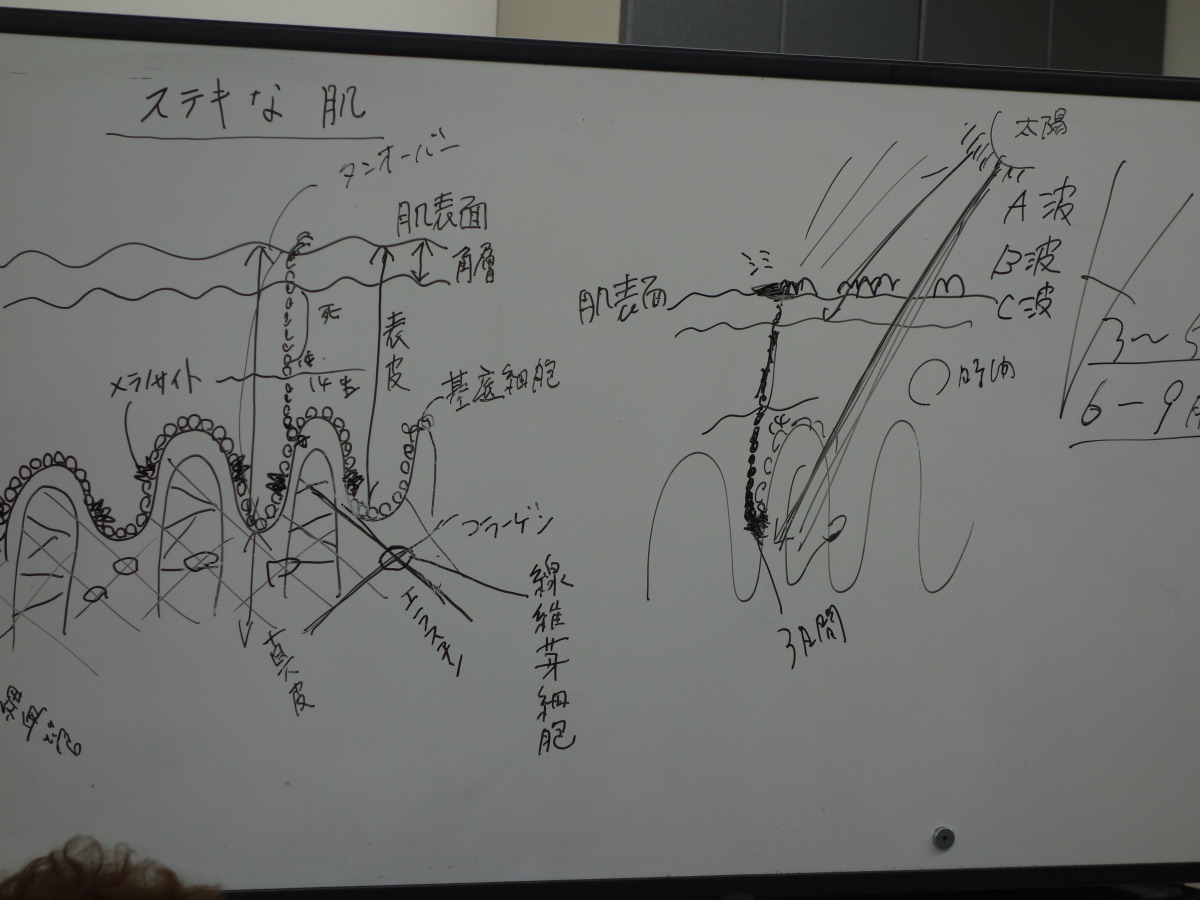 ステキな 肌
タンオーバー
肌表面
角層
死
表皮
メラノサイト
基底細胞
コラーゲン
エラスチン
線維芽細胞
真皮
太陽
A波
B波
C波
肌表面
3〜5
6−9月
3月間